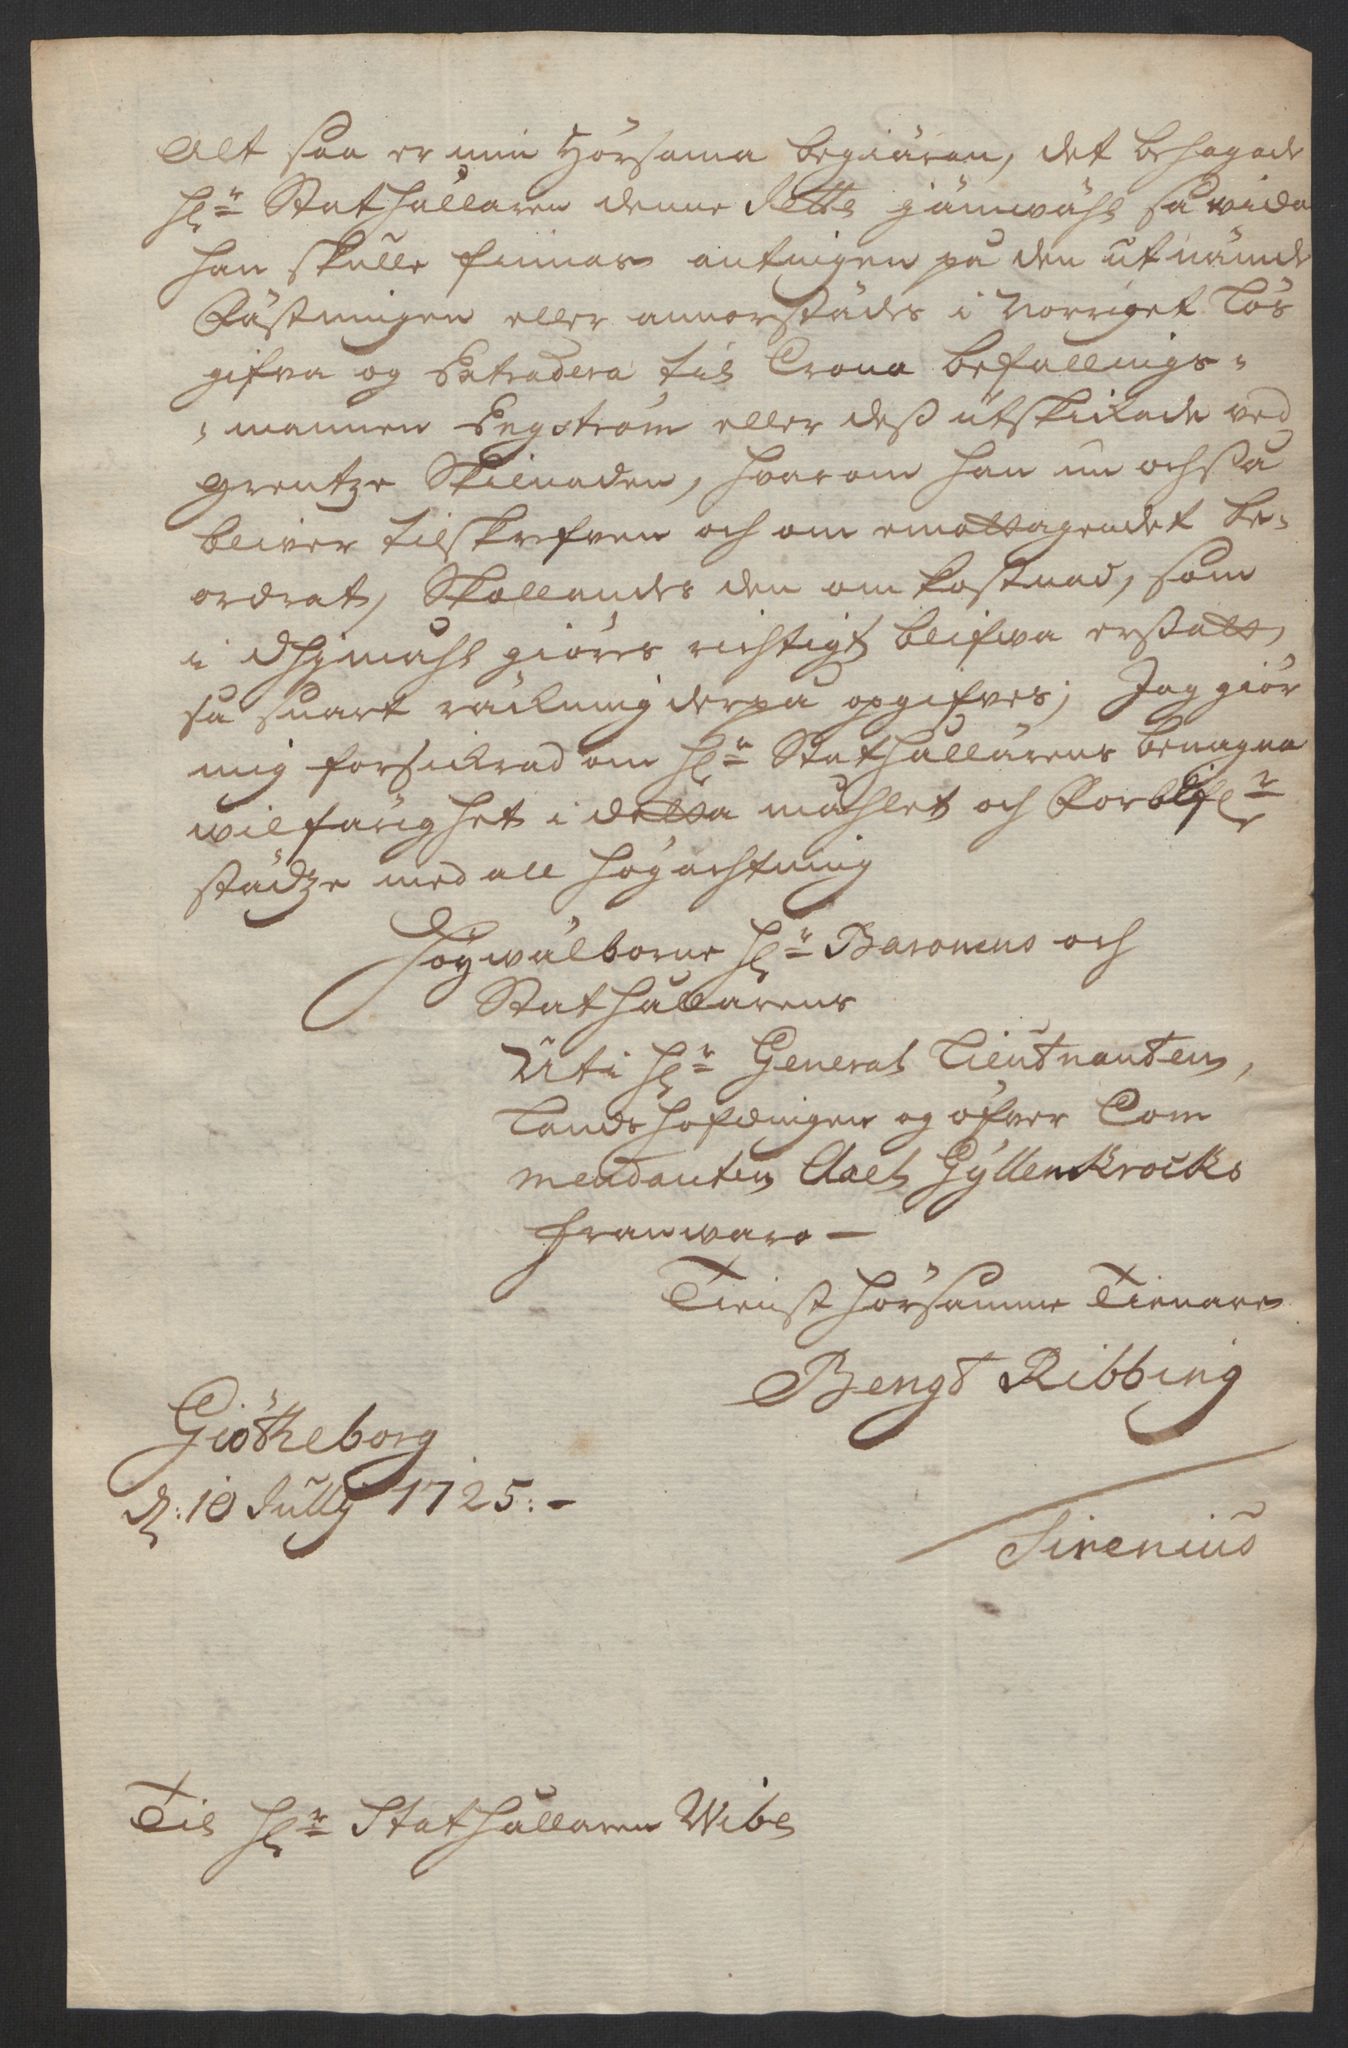 Alt saa er min Hörsama begiäran, det behagade
Hr Stathallaren denne jämwähl så wida
han skulle finnas antingen på den utnämde
Fästningen eller annorstädes i Norriget Lös
gifva og Extradera til Crono befallnigs-
mannen Engström eller dess utskickade ved
grentze Skilnaden, hvarom han nu ochså
bliver tilskrefven och om emottagendet be-
ordrat, Skollandes den omkostnad, som
i giöres richtigt blifwa erstatt,
så snart räkning derpå opgifves; Jag giör
mig forsickrad om Hr Stathallarens benägna
wilfarighet i detta mahlet och Forblifr
städze med all högachtning
Högwälborne Hr Baronens och
Stathallarens
Uti Hr General Lieutnanten,
Landshöfdingen og öfver Com
mendanten Axel Gyllenkrocks
franwaro —
Tienst hörsamme Tienare
Bengt Ribbing
Giötheborg
d: 10 Jullij 1725:-
Sirenius
Til Hr Stathallaren Wibe